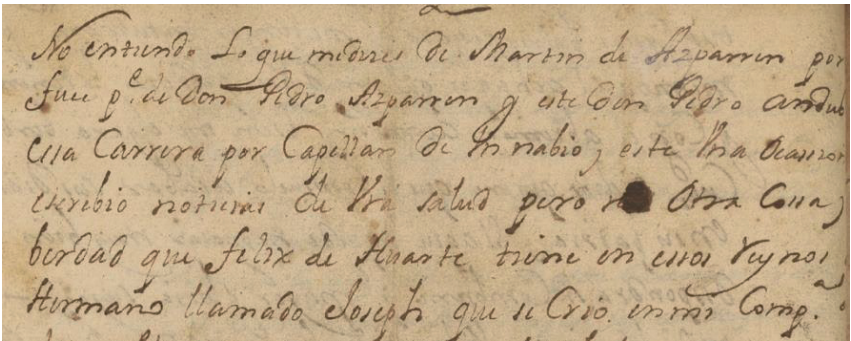 No entiendo Lo que me dizes de Martin de Azparren por
fuee p.e de Don Pedro Azparren y este Don Pedro andub
essa Carrera por Capellan de Un nabio, y este Una Ocasion
escribio noticias de Vra salud pero no Otra Cossa, y
berdad que felix de Huarte tiene en essos Reynos
Hermano llamado Joseph que se Crio en mi Comp.a